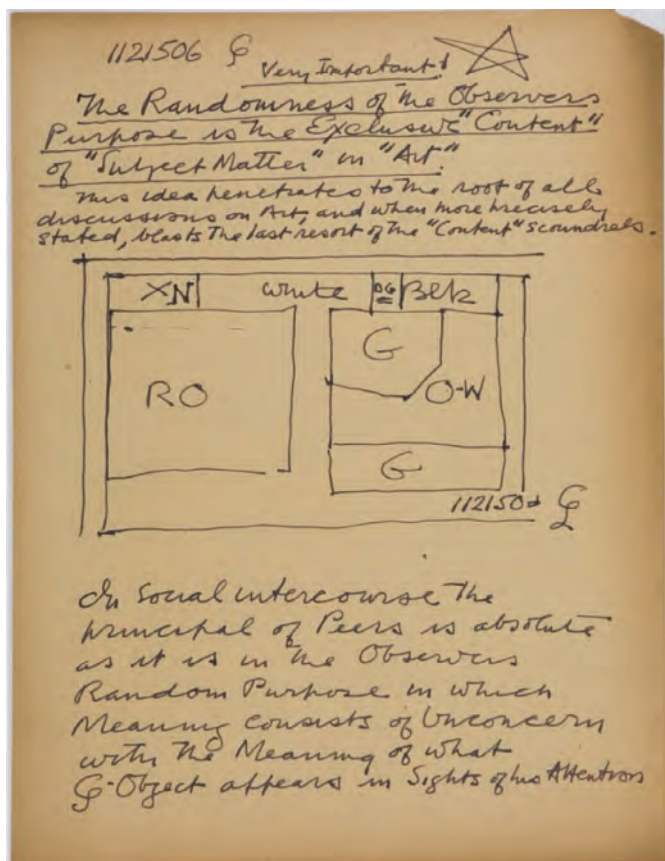 1121506 G
Very Important!
The Randomness of the Observers
Purpose is the Exclusive "Content"
of "Subject Matter" in "Art."
This idea penetrates to the root of all
discussions on Art, and when more precisely
stated, blasts the last resort of the "Content" scoundrels.
XN white OG Blk
G
RO O-W
G
112150
In Social intercourse the
principal of Peers is absolute
as it is in the Observers
Random Purpose in which
Meaning consists of Unconcern
with the Meaning of what
Object appears in Sights of his Attention